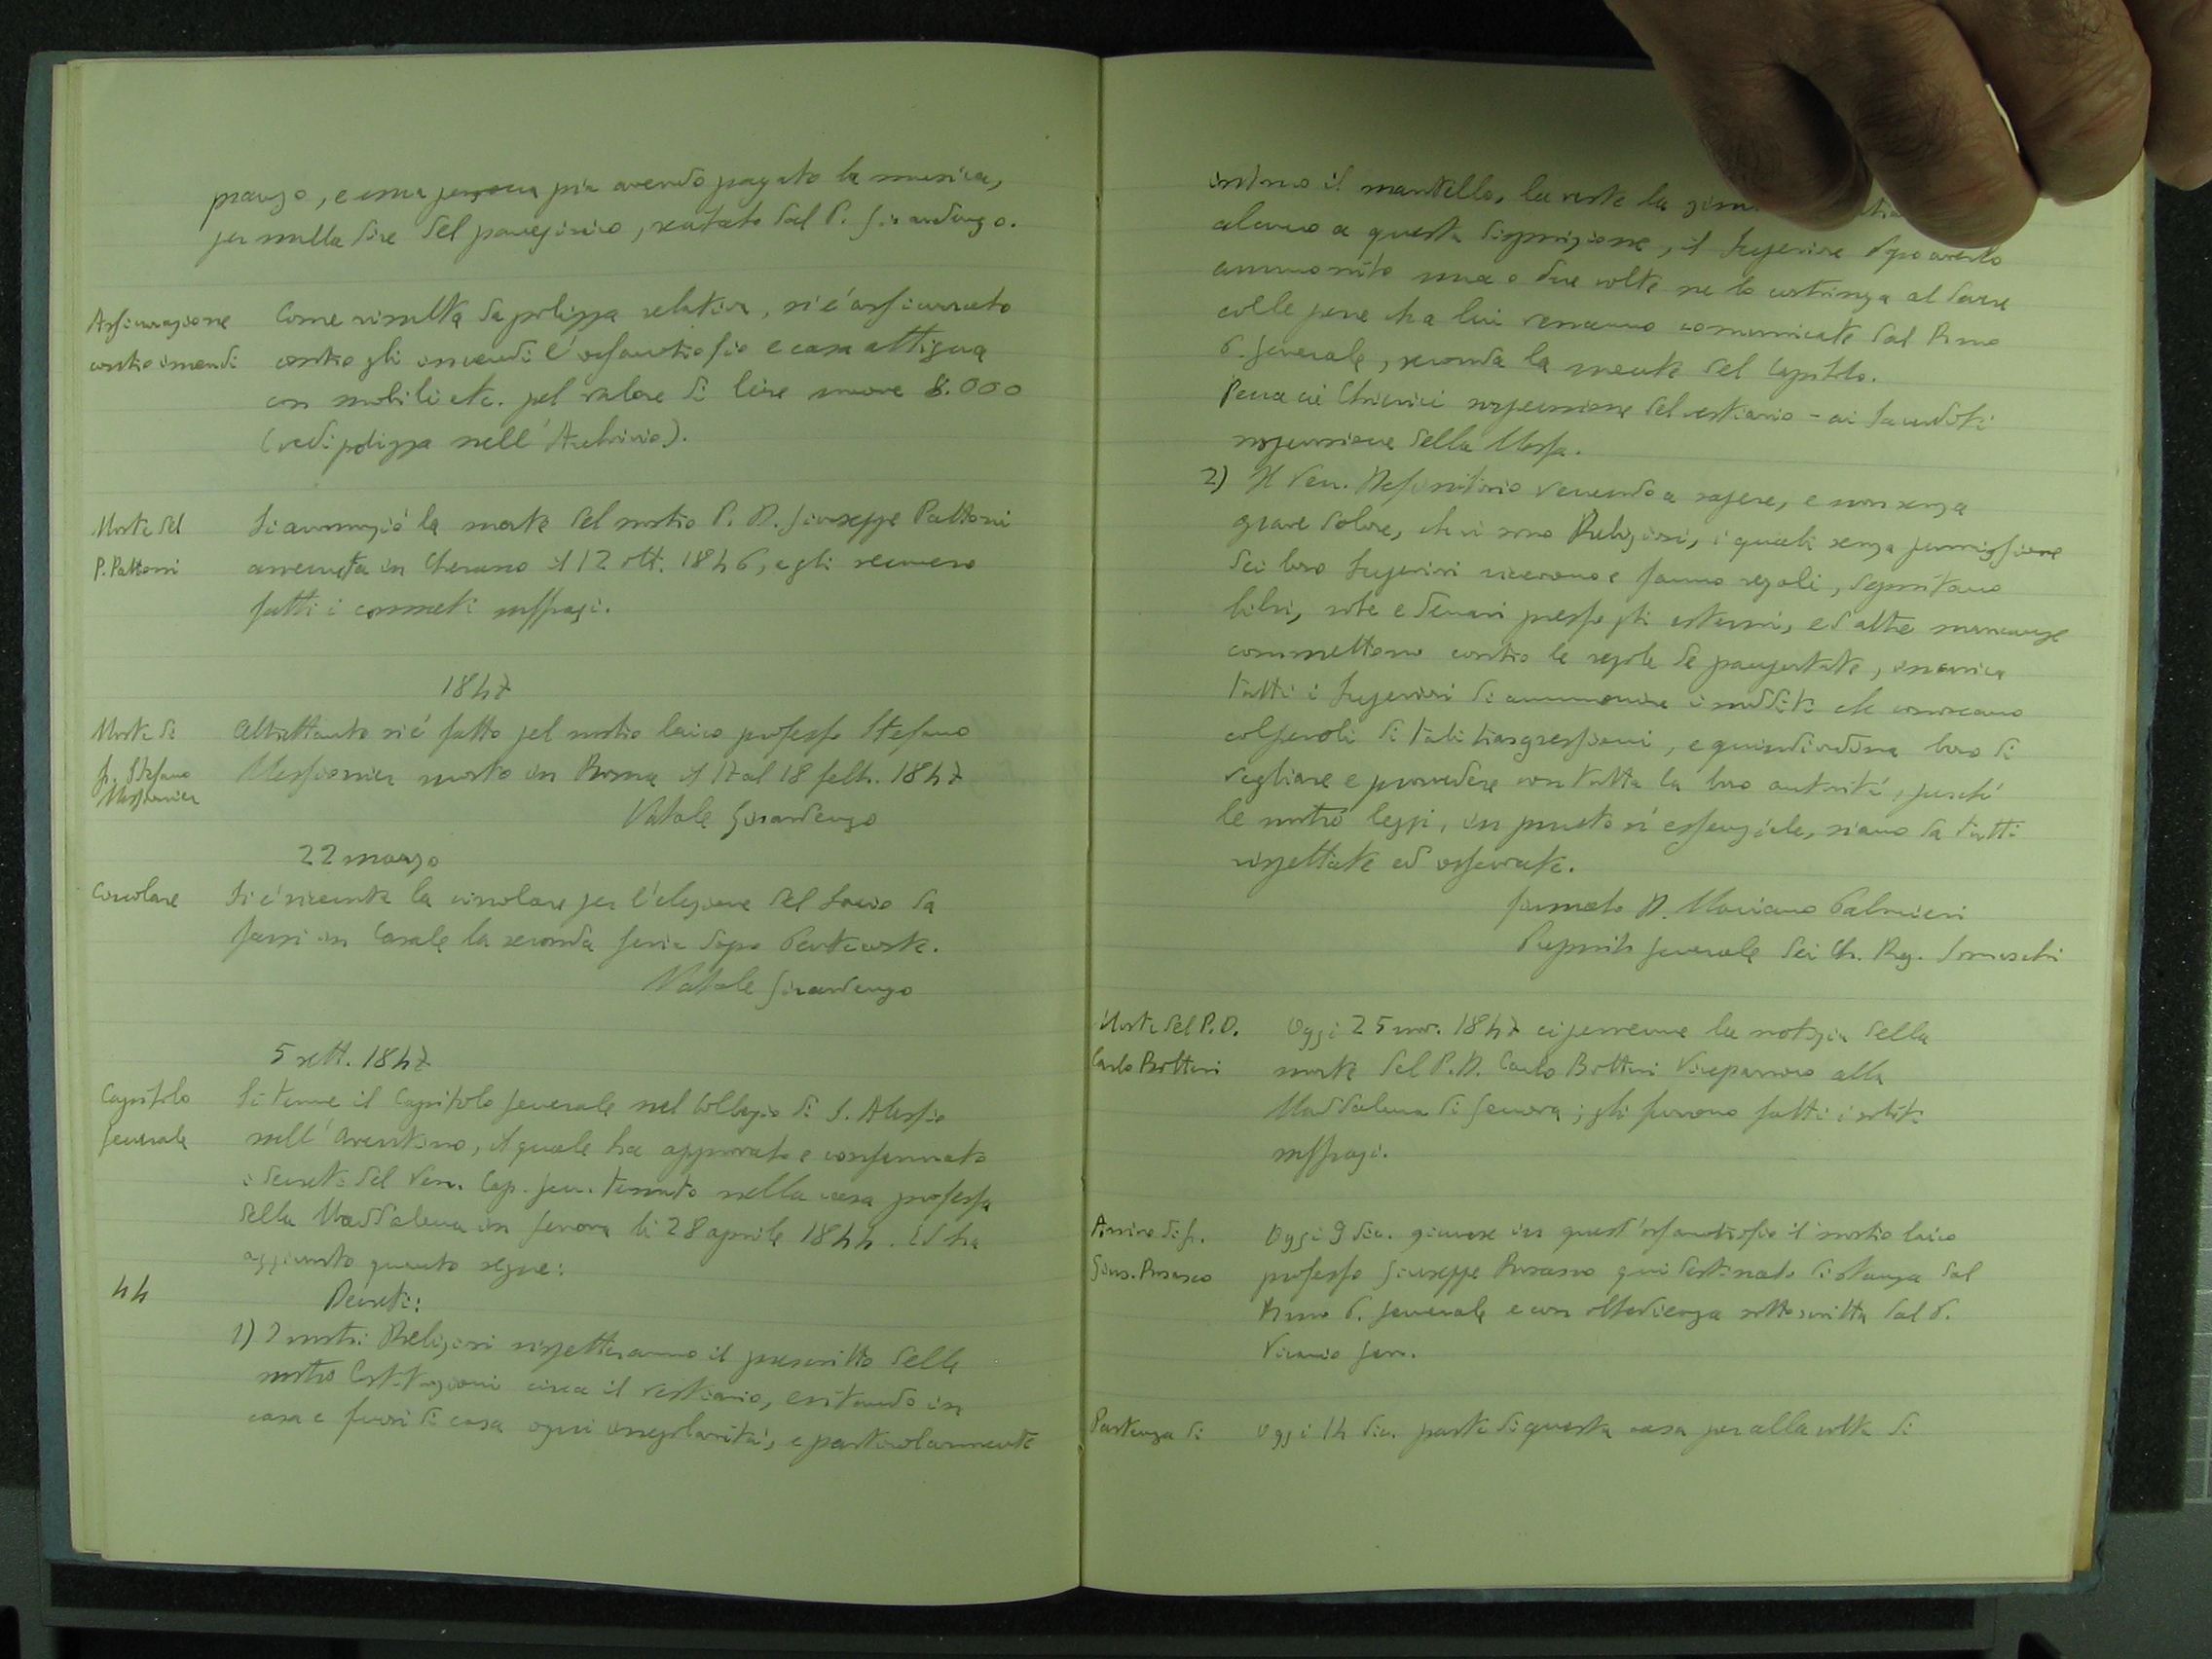 pranzo, e una persona pia avendo pagato la musica,
per nulla dire del panegirico, recitato dal P. Girardengo.
Assicurazione
contro incendi
Come risulta da polizza relativa, si è assicurato
contro gli incendi l'orfanotrofio e casa attigua
con mobili etc. pel valore di lire nuove 8.000
(vedi polizza nell'Archivio).
Morte del
P. Pattoni
Si annunziò la morte del nostro P. D. Giuseppe Pattoni
avvenuta in Cherasco il 12 ott. 1846, e gli vennero
fatti i consueti suffragi.
1847
Morte di
fr. Stefano
Messonier
Altrettanto si è fatto pel nostro laico professo Stefano
Messionier morto in Roma il 17 al 18 febb. 1847
Natale Girardengo
22 marzo
Circolare
Si è ricevuta la circolare per l'elezione del Socio da
farsi in Casale la seconda feria dopo Pentecoste.
Natale Girardengo
5 sett. 1847
Capitolo
generale
Si tenne il Capitolo generale nel Collegio di S. Alessio
nell'Aventino, il quale ha approvato e confermato
i decreti del Ven. Cap. gen. tenuto nella casa professa
della Maddalena in Genova li 28 aprile 1844. Ed ha
aggiunto quanto segue:
44
Decreti:
1) I nostri Religiosi rispetteranno il prescritto delle
nostre Costituzioni circa il vestiario, evitando in
casa e fuori di casa ogni singolarità, e particolarmente
il mantello, la veste la
alcuno a questa disposizione, il Superiore dopo averlo
ammonito una o due volte ne lo costringa al dovere
colle pene che a lui verranno comunicate dal Rmo
P. Generale, secondo la mente del Capitolo.
Pena ai Chierici sospensione del vestiario - ai Sacerdoti
sospensione della Messa.
2) Il Ven. Definitorio venendo a sapere, e non senza
grave dolore, che vi sono Religiosi, i quali senza permissione
dei loro Superiori ricevono e fanno regali, depositano
libri, robe e denari presso gli esterni, ed altre mancanze
commettono contro le regole de paupertate, incarica
tutti i Superiori di ammonire i sudditi che conoscano
colpevoli di tali trasgressioni, e quindi ordina loro di
vegliare e provvedere con tutta la loro autorità, perché
le nostre leggi, in punto sì essenziale, siano da tutti
rispettate ed osservate.
firmato D. Mariano Palmieri
Preposito generale dei Ch. Reg. Somaschi
Morte del P. D.
Carlo Bottari
Oggi 25 nov. 1847 ci pervenne la notizia della
morte del P. D. Carlo Bottari Viceparroco alla
Maddalena di Genova; gli furono fatti i soliti
suffragi.
Arrivo di fr.
Gius. Rosasco
Oggi 9 dic. giunse in quest'orfanotrofio il nostro laico
professo Giuseppe Rosasco qui destinato di stanza dal
Rmo P. Generale e con obbedienza sottoscritta dal P.
Vicario Gen.
Partenza di
Oggi 14 dic. parte di questa casa per alla volta di